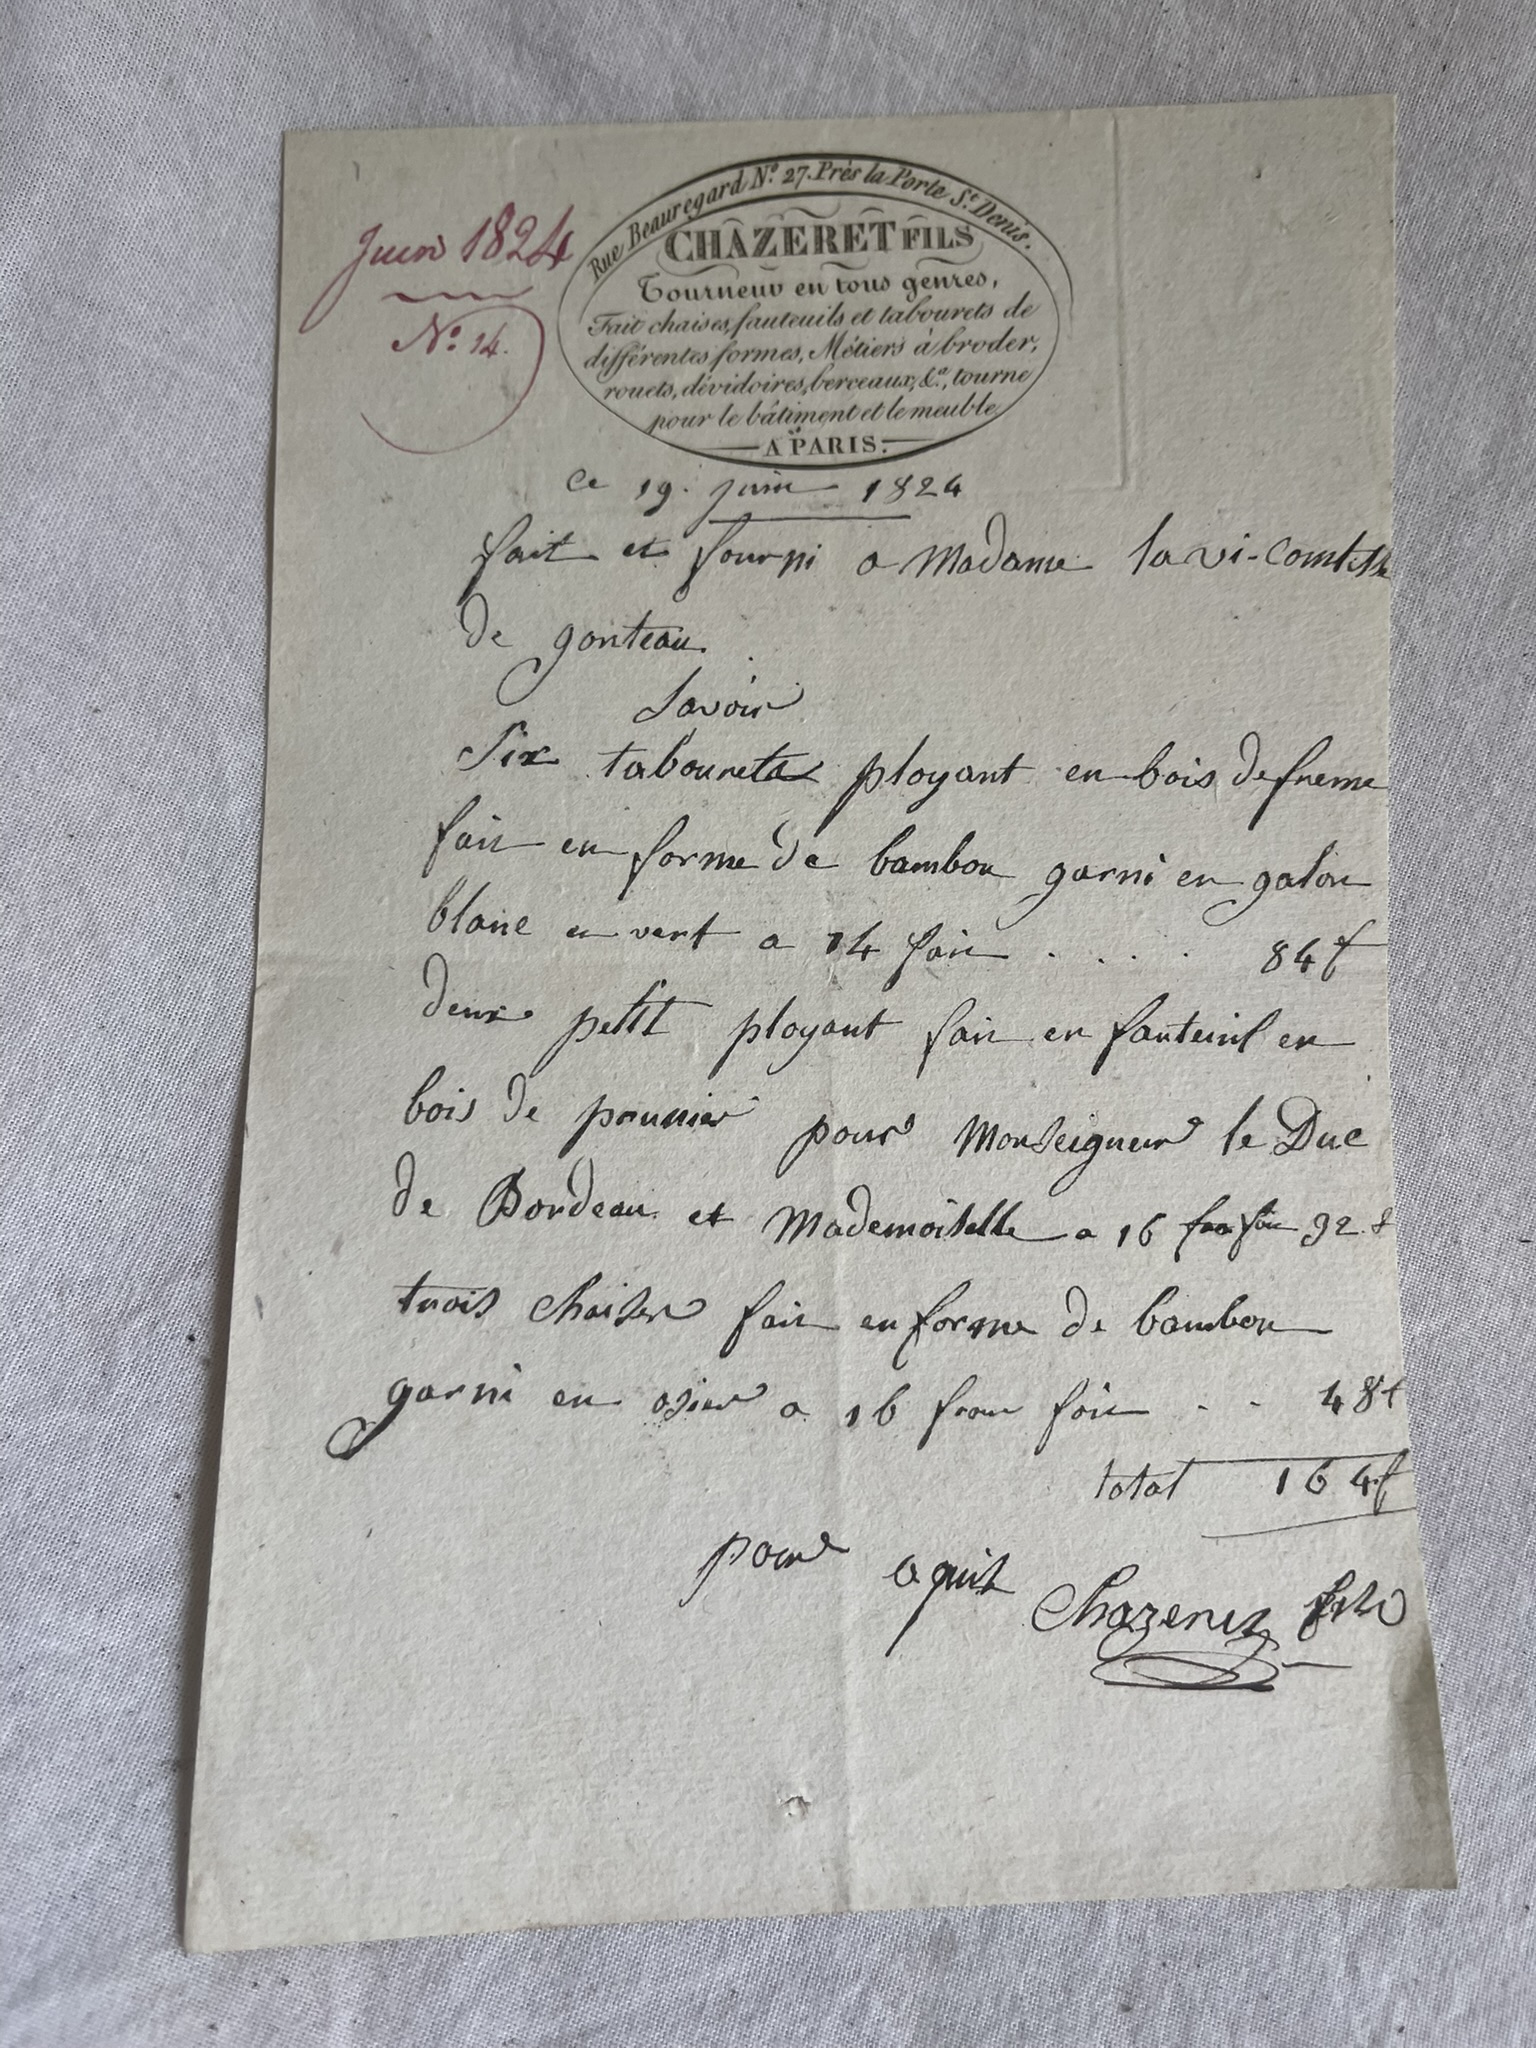 Juin 1824
N.º 14.
Rue Beauregard N.º 27. Près la Porte S.t Denis.
CHAZERET FILS
Tourneur en tous genres,
Fait chaises, fauteuils et tabourets de
différentes formes, Métiers à broder,
rouets, dévidoires, berceaux, &.a, tourne
pour le bâtiment et le meuble
A PARIS.
Ce 19. juin 1824
fait et fourni a Madame la vi-comtesse
de gonteau.
Savoir
Six tabourets ployant en bois de frene
fait en forme de bambou garni en galon
blanc en vert a 14 fait . . . . 84 f
deux petit ployant fait en fauteuil en
bois de prunier pour Monseigneur le Duc
de Bordeau et Mademoiselle a 16 32 f
trois chaises fait en forme de bambou
garni en osier a 16 fran fait . . 48 f
total 164 f
pour aquit Chazeret fils